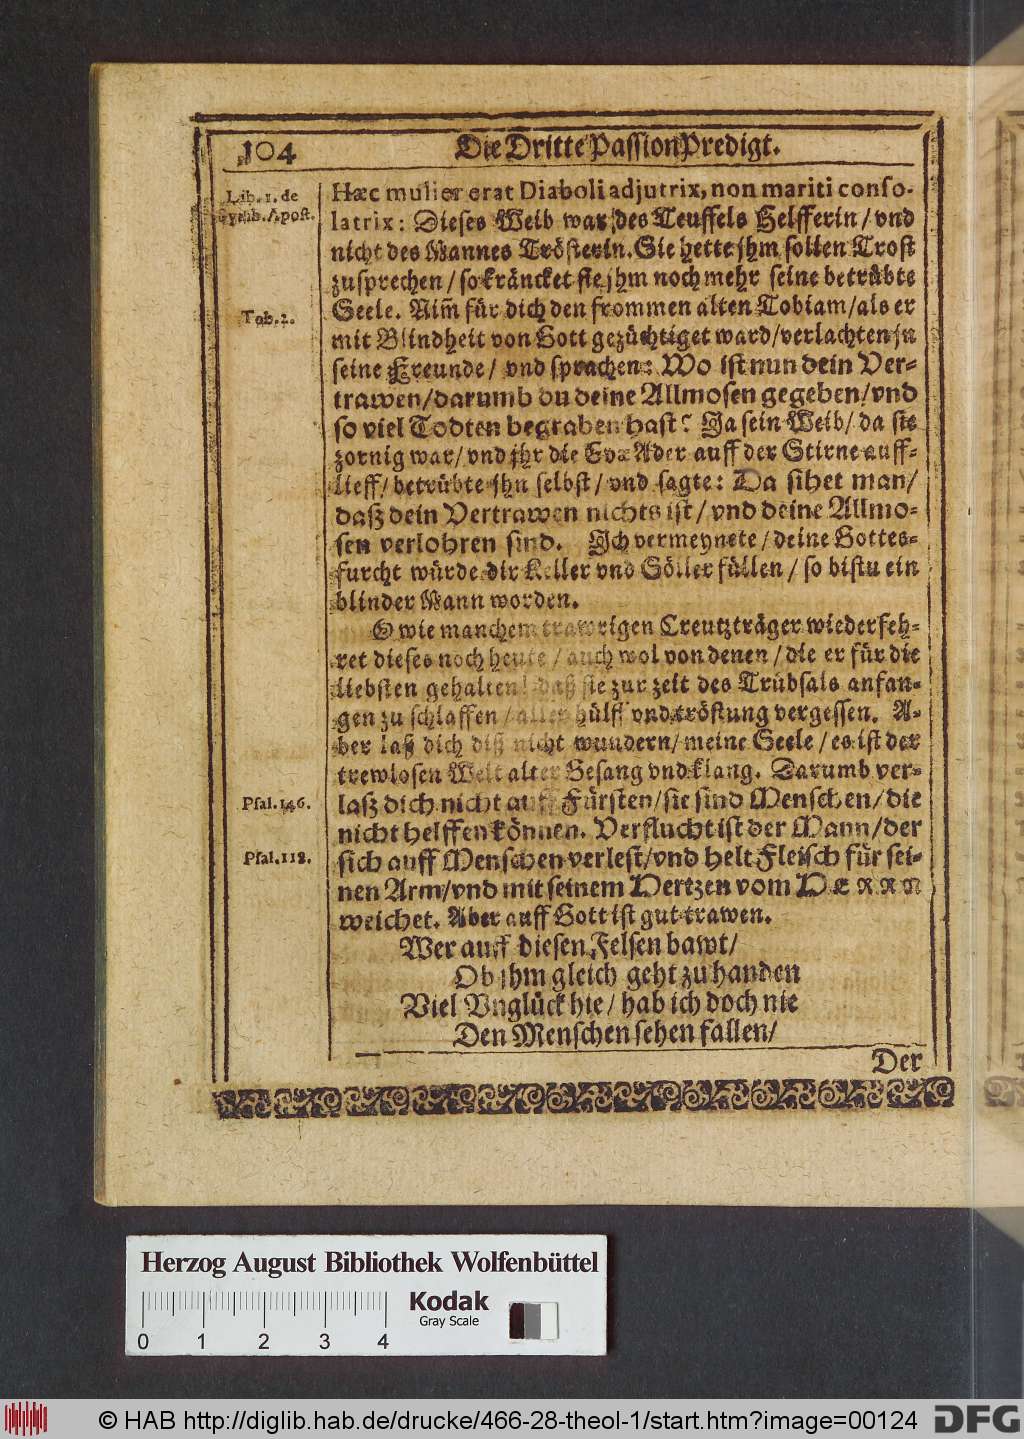 104 Die Dritte Passion Predigt.
Lib. 1. de
Symb. Apost.
Hæc mulier erat Diaboli adjutrix, non mariti conso-
latrix: Dieses Weib war des Teuffels Helfferin/ vnd
nicht des Mannes Trösterin. Sie hette jhm sollen Trost
zusprechen/ so kräncket sie jhm noch mehr seine betrübte
Seele. Nim̃ für dich den frommen alten Tobiam/ als er
Tob. 2.
mit Blindheit von Gott gezüchtiget ward/ verlachten jn
seine Freunde/ vnd sprachen: Wo ist nun dein Ver-
trawen/ darumb du deine Allmosen gegeben/ vnd
so viel Todten begraben hast? Ja sein Weib/ da sie
zornig war/ vnd jhr die Evæ Ader auff der Stirne auff-
lieff/ betrübte jhn selbst/ vnd sagte: Da sihet man/
daß dein Vertrawen nichts ist/ vnd deine Allmo-
sen verlohren sind. Ich vermeynete/ deine Gottes-
furcht würde dir Keller vnd Söller füllen/ so bistu ein
blinder Mann worden.
O wie manchem trawrigen Creutzträger wiederfeh-
ret dieses noch heute/ auch wol von denen/ die er für die
liebsten gehalten! daß sie zur zeit des Trübsals anfan-
gen zu schlaffen/ aller hülff vnd tröstung vergessen. A-
ber laß dich diß nicht wundern/ meine Seele/ es ist der
trewlosen Welt alter Gesang vnd klang. Darumb ver-
Psal. 146.
laß dich nicht auff Fürsten/ sie sind Menschen/ die
nicht helffen können. Verflucht ist der Mann/ der
Psal. 118.
sich auff Menschen verlest/ vnd helt Fleisch für sei-
nen Arm/ vnd mit seinem Hertzen vom HERRN
weichet. Aber auff Gott ist gut trawen.
Wer auff diesen Felsen bawt/
Ob jhm gleich geht zu handen
Viel Vnglück hie/ hab ich doch nie
Den Menschen sehen fallen/
Der
Herzog August Bibliothek Wolfenbüttel
Kodak
Gray Scale
0 1 2 3 4
© HAB http://diglib.hab.de/drucke/466-28-theol-1/start.htm?image=00124
DFG